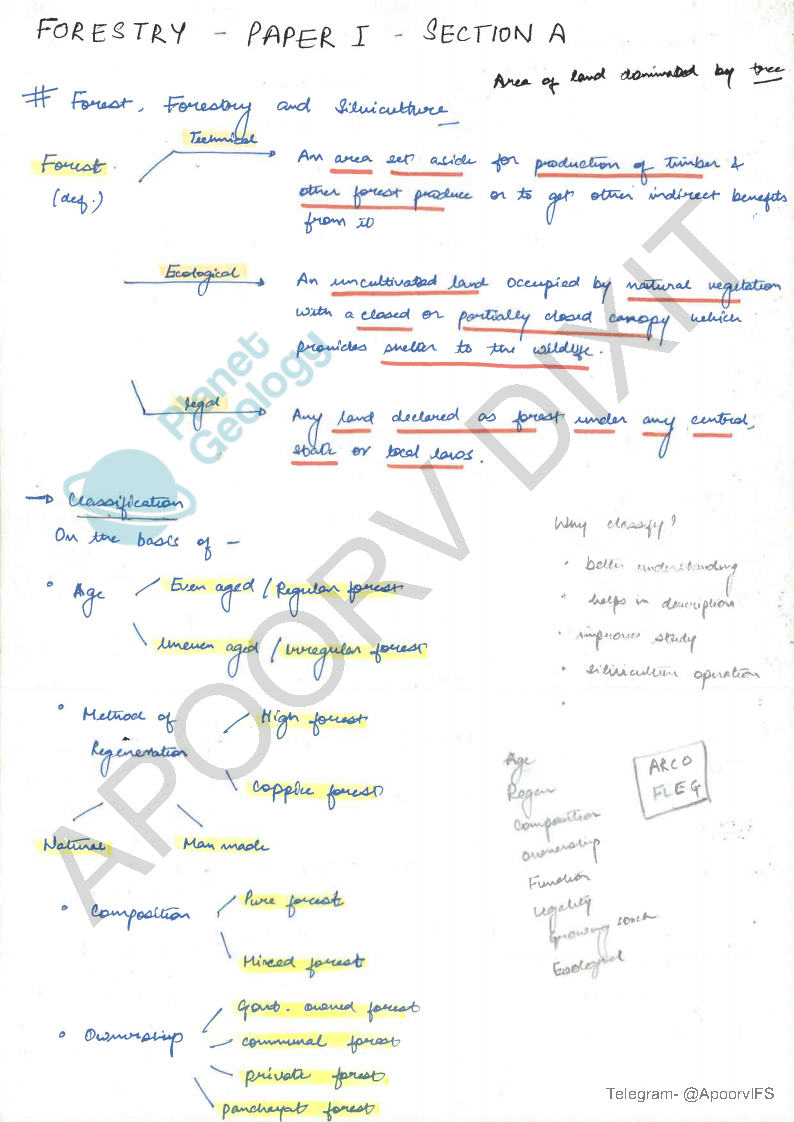 FORESTRY - PAPER I - SECTION A
Area of land dominated by tree
# Forest, Forestry and Silviculture
Technical
Forest
(def.)
An area set aside for production of timber &
other forest produce or to get other indirect benefits
from it
Ecological
An uncultivated land occupied by natural vegetation
with a closed or partially closed canopy which
provides shelter to the wildlife.
legal
Any land declared as forest under any central,
state or local laws.
Planet
Geology
→ Classification
On the basis of -
Why classify?
• better understanding
• helps in description
• improves study
• silviculture operation
•
• Age
Even aged / Regular forest
Uneven aged / Irregular forest
• Method of
Regeneration
High forest
Coppice forest
Natural
Man made
Age
Regen
Composition
Ownership
Function
Legality
Growing stock
Ecological
ARCO
FLEG
• Composition
Pure forest
Mixed forest
• Ownership
Govt. owned forest
communal forest
private forest
panchayat forest
APOORV DIXIT
Telegram- @ApoorvIFS